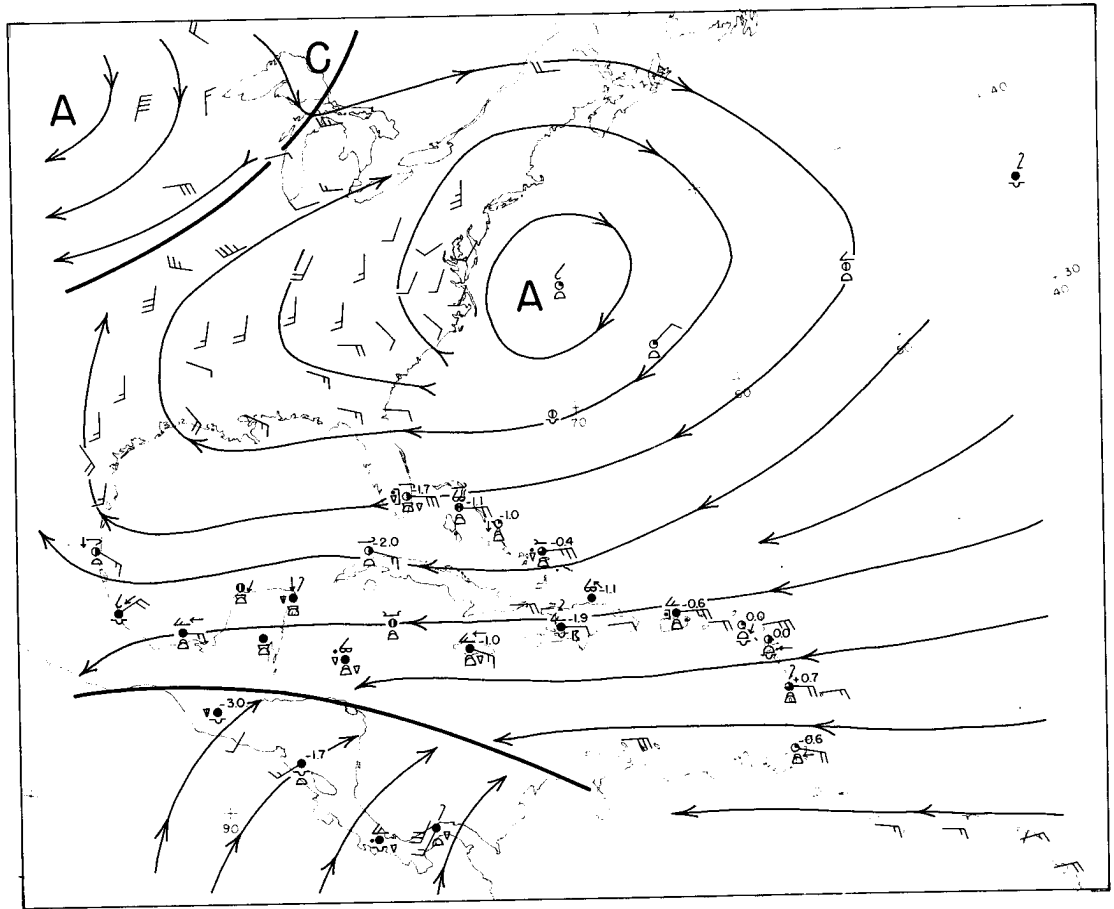 C
A
40
30
40
A
60
70
-1.7
-1.1
-1.0
-0.4
-2.0
-1.1
-0.6
0.0
-1.9
0.0
-1.0
+0.7
-3.0
-0.6
-1.7
90